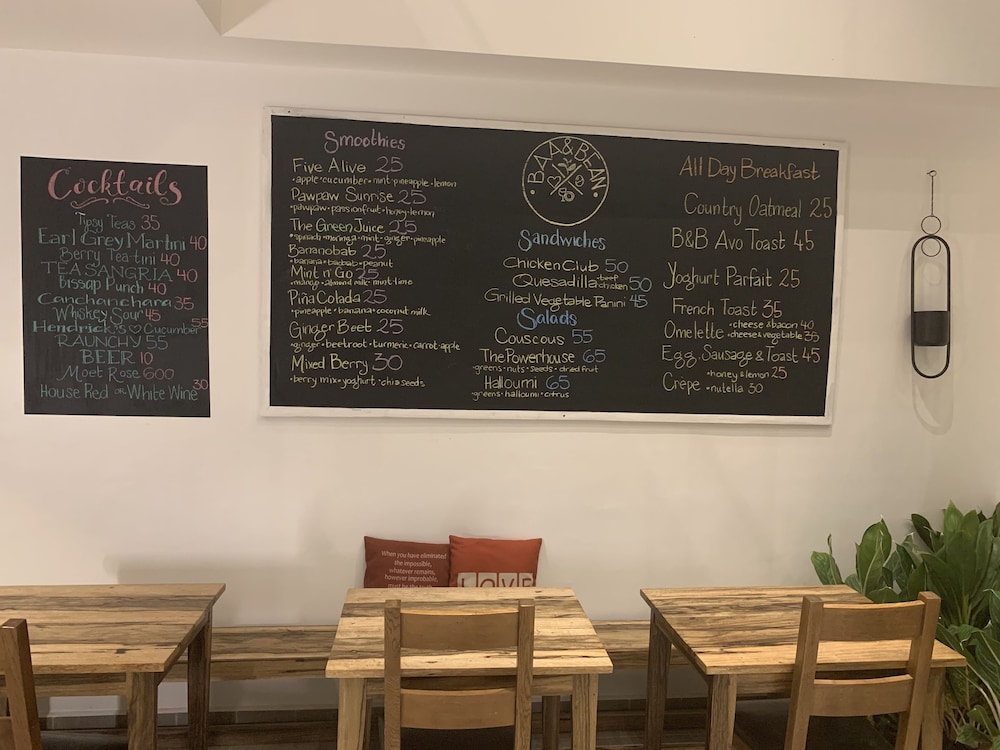 Cocktails
Tipsy Teas 35
Earl Grey Martini 40
Berry Tea-tini 40
TEASANGRIA 40
Bissap Punch 40
Canchanchara 35
Whiskey Sour 45
Hendrick's ♡ Cucumber 55
RAUNCHY 55
BEER 10
Moet Rose 600
House Red or White Wine 30
Smoothies
Five Alive 25
•apple•cucumber•mint•pineapple•lemon
Pawpaw Sunrise 25
•pawpaw•passionfruit•honey•lemon
The Green Juice 25
•spinach•moringa•mint•ginger•pineapple
Bananobab 25
•banana•baobab•peanut
Mint n' Go 25
•mango•almond milk•mint•lime
Piña Colada 25
•pineapple•banana•coconut milk
Ginger Beet 25
•ginger•beetroot•turmeric•carrot•apple
Mixed Berry 30
•berry mix•yoghurt•chia seeds
BAA&BEAN
Sandwiches
Chicken Club 50
Quesadilla •beef •chicken 50
Grilled Vegetable Panini 45
Salads
Couscous 55
The Powerhouse 65
•greens•nuts•seeds•dried fruit
Halloumi 65
•greens•halloumi•citrus
All Day Breakfast
Country Oatmeal 25
B&B Avo Toast 45
Yoghurt Parfait 25
French Toast 35
Omelette •cheese & bacon 40
•cheese & vegetable 35
Egg, Sausage & Toast 45
Crepe •honey & lemon 25
•nutella 30
When you have eliminated
the impossible,
whatever remains,
however improbable,
must be the truth
LOVE